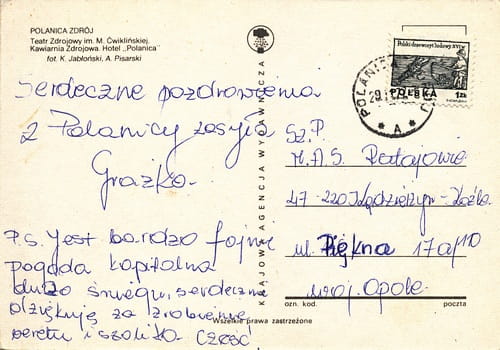 POLANICA ZDRÓJ
Teatr Zdrojowy im. M. Ćwiklińskiej.
Kawiarnia Zdrojowa. Hotel „Polanica"
fot. K. Jabłoński, A. Pisarski
Serdeczne pozdrowienia
z Polanicy zasyła
Grażka.
P.s. Jest bardzo fajnie
pogoda kapitalna
dużo śniegu, serdecznie
dziękuję za zrobienie
beretu i szalika. Cześć
KRAJOWA AGENCJA WYDAWNICZA
Polski drzeworyt ludowy XVI w.
POLSKA
1 zł
POLANICA
A
Sz. P.
M. A. S. Ratajowie
47-220 Kędzierzyn-Koźle
ul. Piękna 17a/10
woj. Opole.
ozn. kod. poczta
Wszelkie prawa zastrzeżone